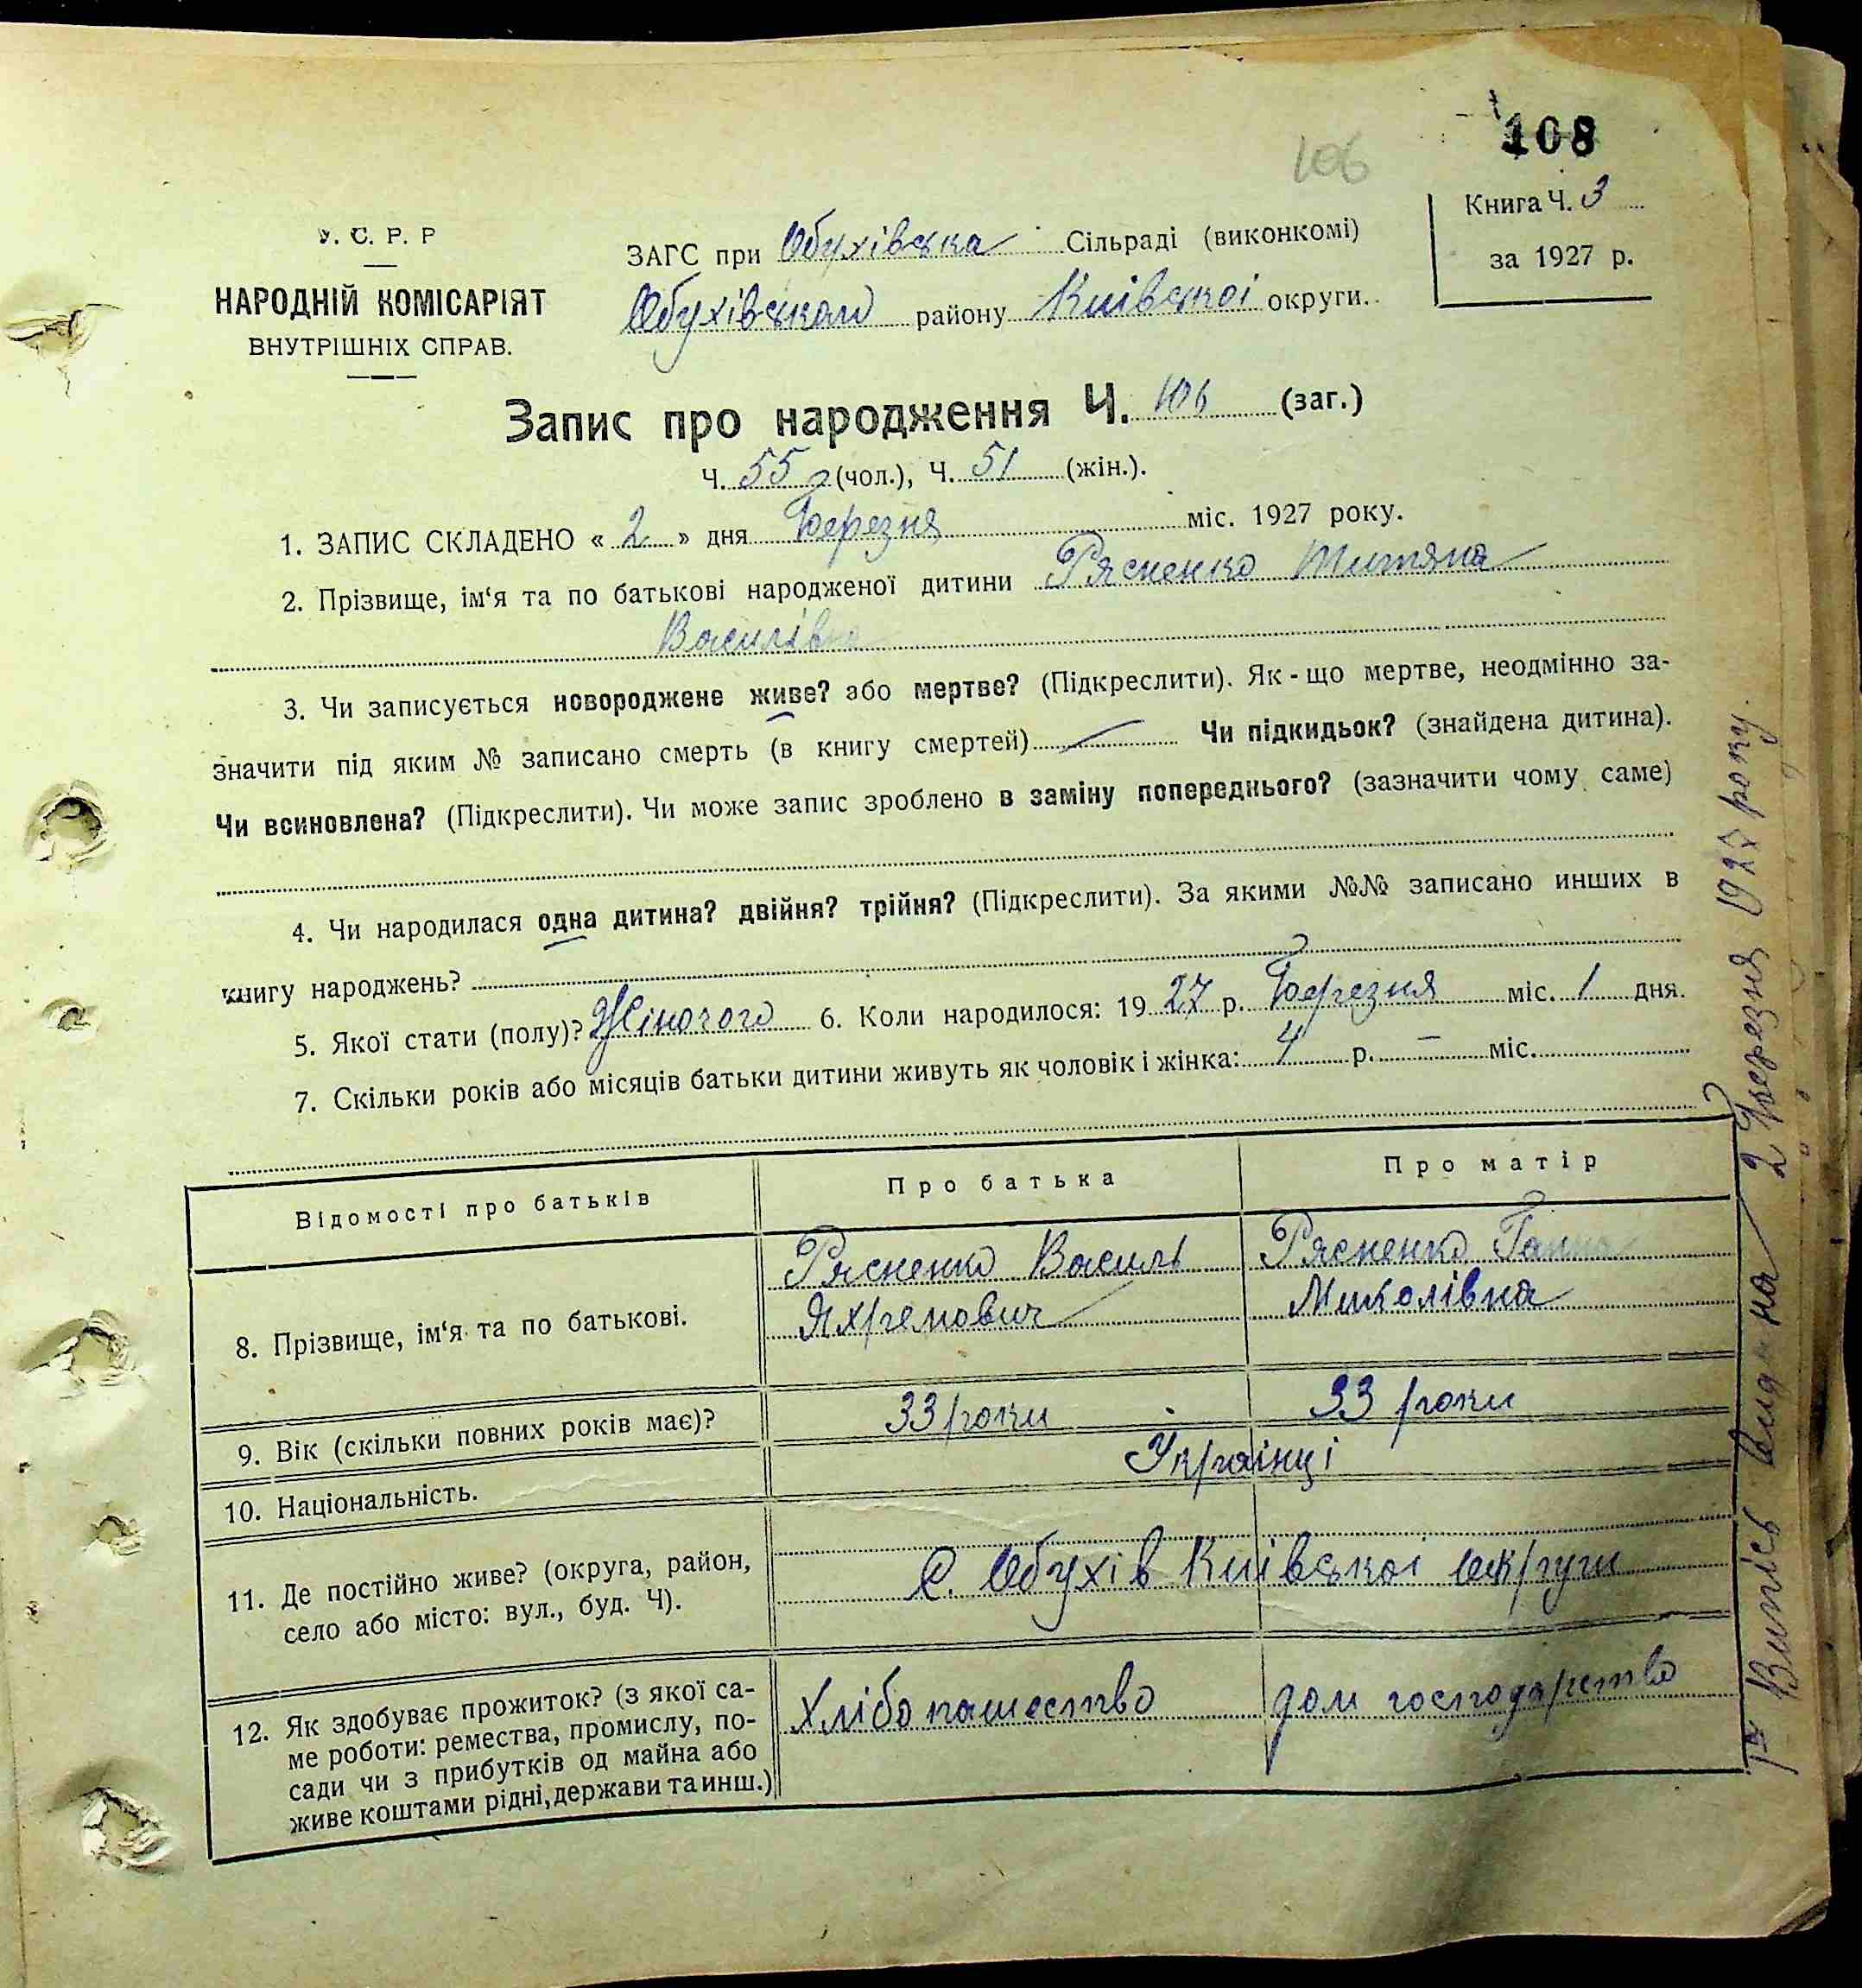 108
106
Книга Ч. 3
за 1927 р.
У. С. Р. Р
НАРОДНІЙ КОМІСАРІЯТ
ВНУТРІШНІХ СПРАВ.
ЗАГС при Обухівська Сільраді (виконкомі)
Обухівського району Київської округи.
Запис про народження Ч. 106 (заг.)
Ч. 55 (чол.), Ч. 51 (жін.).
1. ЗАПИС СКЛАДЕНО « 2 » дня Березня міс. 1927 року.
2. Прізвище, ім‘я та по батькові народженої дитини Рясненко Титяна
Василівна
3. Чи записується новороджене живе? або мертве? (Підкреслити). Як-що мертве, неодмінно за-
значити під яким № записано смерть (в книгу смертей) — Чи підкидьок? (знайдена дитина).
Чи всиновлена? (Підкреслити). Чи може запис зроблено в заміну попереднього? (зазначити чому саме)
4. Чи народилася одна дитина? двійня? трійня? (Підкреслити). За якими №№ записано инших в
книгу народжень?
5. Якої стати (полу)? Жіночого 6. Коли народилося: 19 27 р. Березня міс. 1 дня.
7. Скільки років або місяців батьки дитини живуть як чоловік і жінка: 4 р. — міс.
Відомості про батьків
Про батька
Про матір
8. Прізвище, ім‘я та по батькові.
Рясненко Василь
Рясненко Ганна
Миколівна
9. Вік (скільки повних років має)?
33 роки
33 роки
10. Національність.
Українці
11. Де постійно живе? (округа, район,
село або місто: вул., буд. Ч).
С. Обухів Київської округи
12. Як здобуває прожиток? (з якої са-
ме роботи: ремества, промислу, по-
сади чи з прибутків од майна або
живе коштами рідні, держави та инш.)
Хлібопашество
дом господарство
Випісь видана 2 Березня 1927 року.